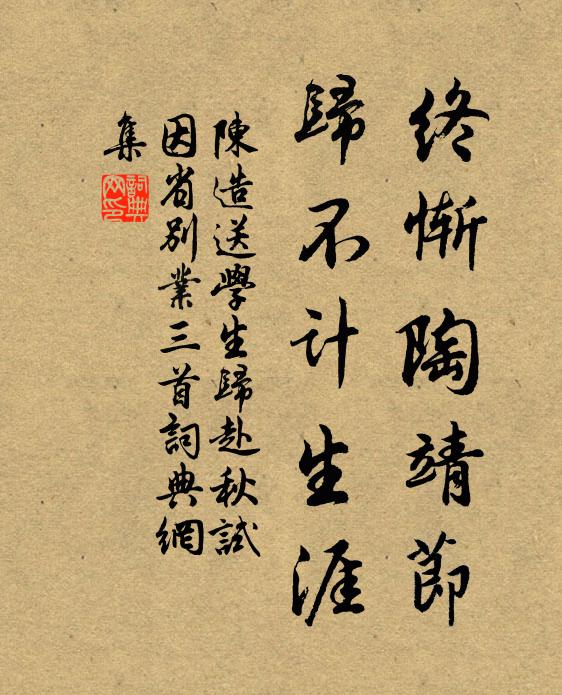 終慚陶靖節
歸不計生涯
陳造送學生歸赴秋試
因省別業三首詞典網
集
詞典
网印